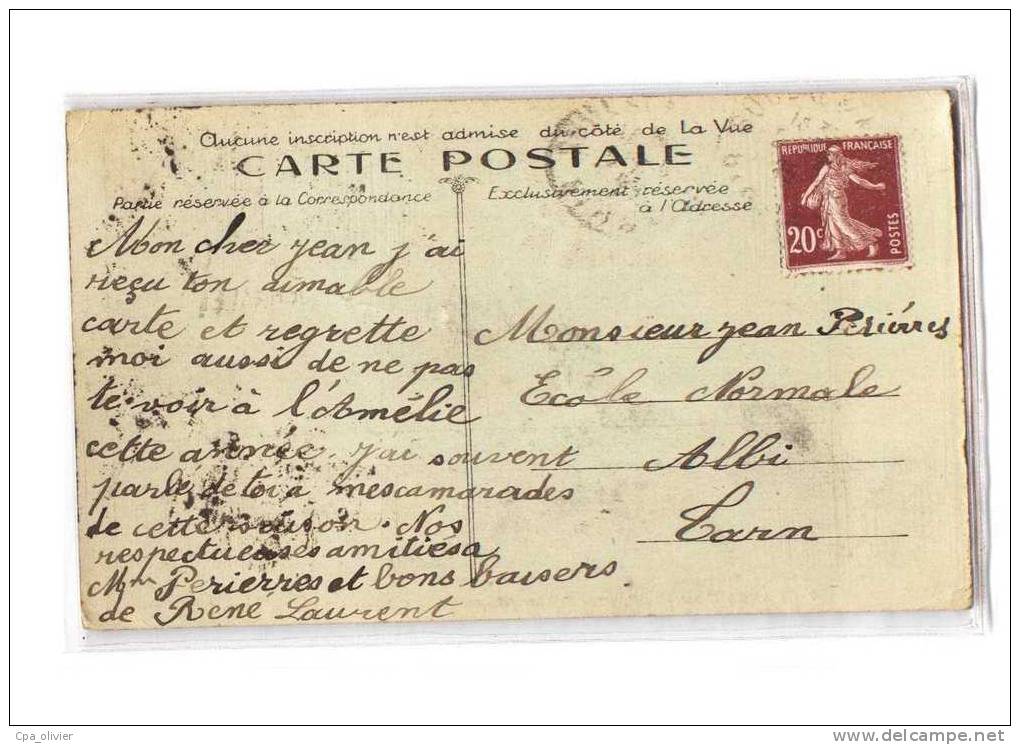 Aucune inscription n'est admise du côté de La Vue
CARTE POSTALE
Partie réservée à la Correspondance
Exclusivement réservée
à l'Adresse
REPUBLIQUE FRANÇAISE
20c
POSTES
Mon cher Jean j'ai
reçu ton aimable
carte et regrette
moi aussi de ne pas
te voir à l'Amélie
cette année. J'ai souvent
parlé de toi à mes camarades
de cette saison. Nos
respectueuses amitiés a
Mme Perierres et bons baisers
de René Laurent
Monsieur Jean Perièrres
Ecole Normale
Albi
Tarn
Cpa_olivier
www.delcampe.net